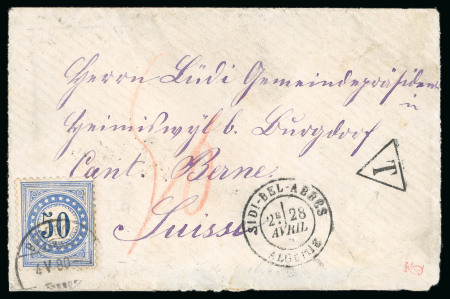 Herrn Lüdi Gemeindepräsident
in
Heimiswyl b. Burgdorf
Cant. Berne
Suisse
T
50
4 V 80
SIDI-BEL-ABBÈS
2E 28
AVRIL
ALGÉRIE